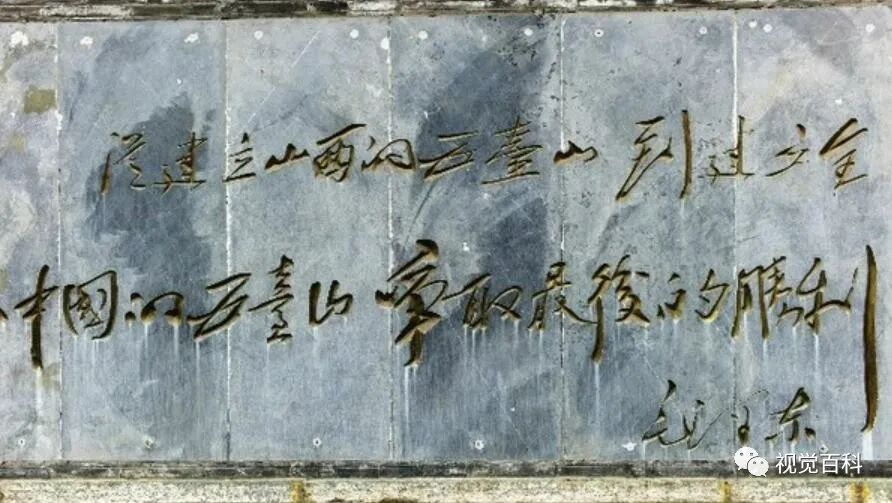 從建立山西的五臺山到建立全
中国的五臺山争取最後的勝利
毛泽东
视觉百科